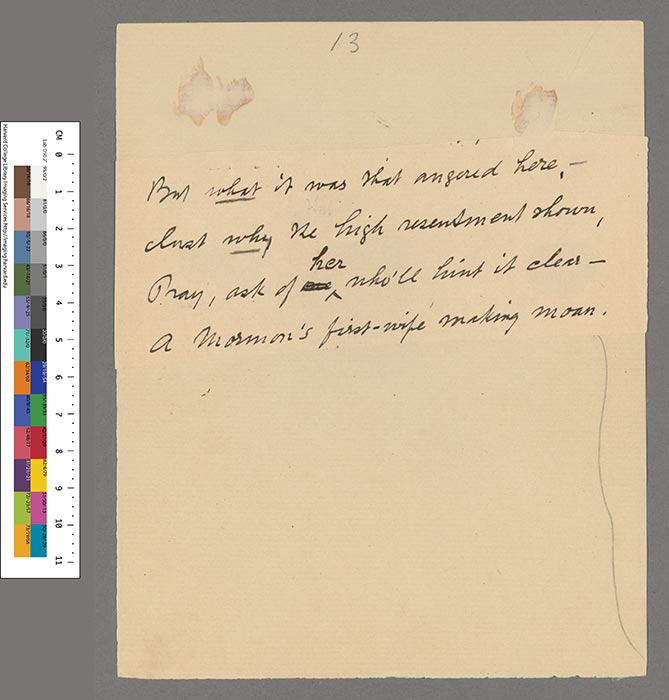 13
But what it was that angered here, —
And why the high resentment shown,
Pray, ask of her, who'll hint it clear —
A Mormon's first-wife making moan.
CM 0 1 2 3 4 5 6 7 8 9 10 11
Harvard College Library Imaging Services http://imaging.harvard.edu